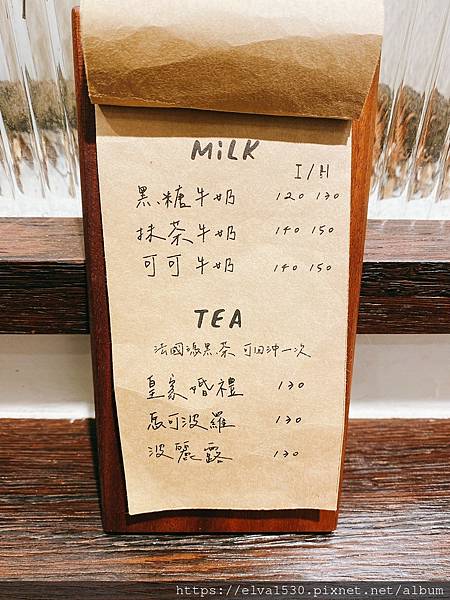 MiLK
I/H
黑糖牛奶 120 130
抹茶牛奶 140 150
可可牛奶 140 150
TEA
法國漫黑茶 可回沖一次
皇家婚禮 130
馬可波羅 130
波麗露 130
https://elva1530.pixnet.net/album